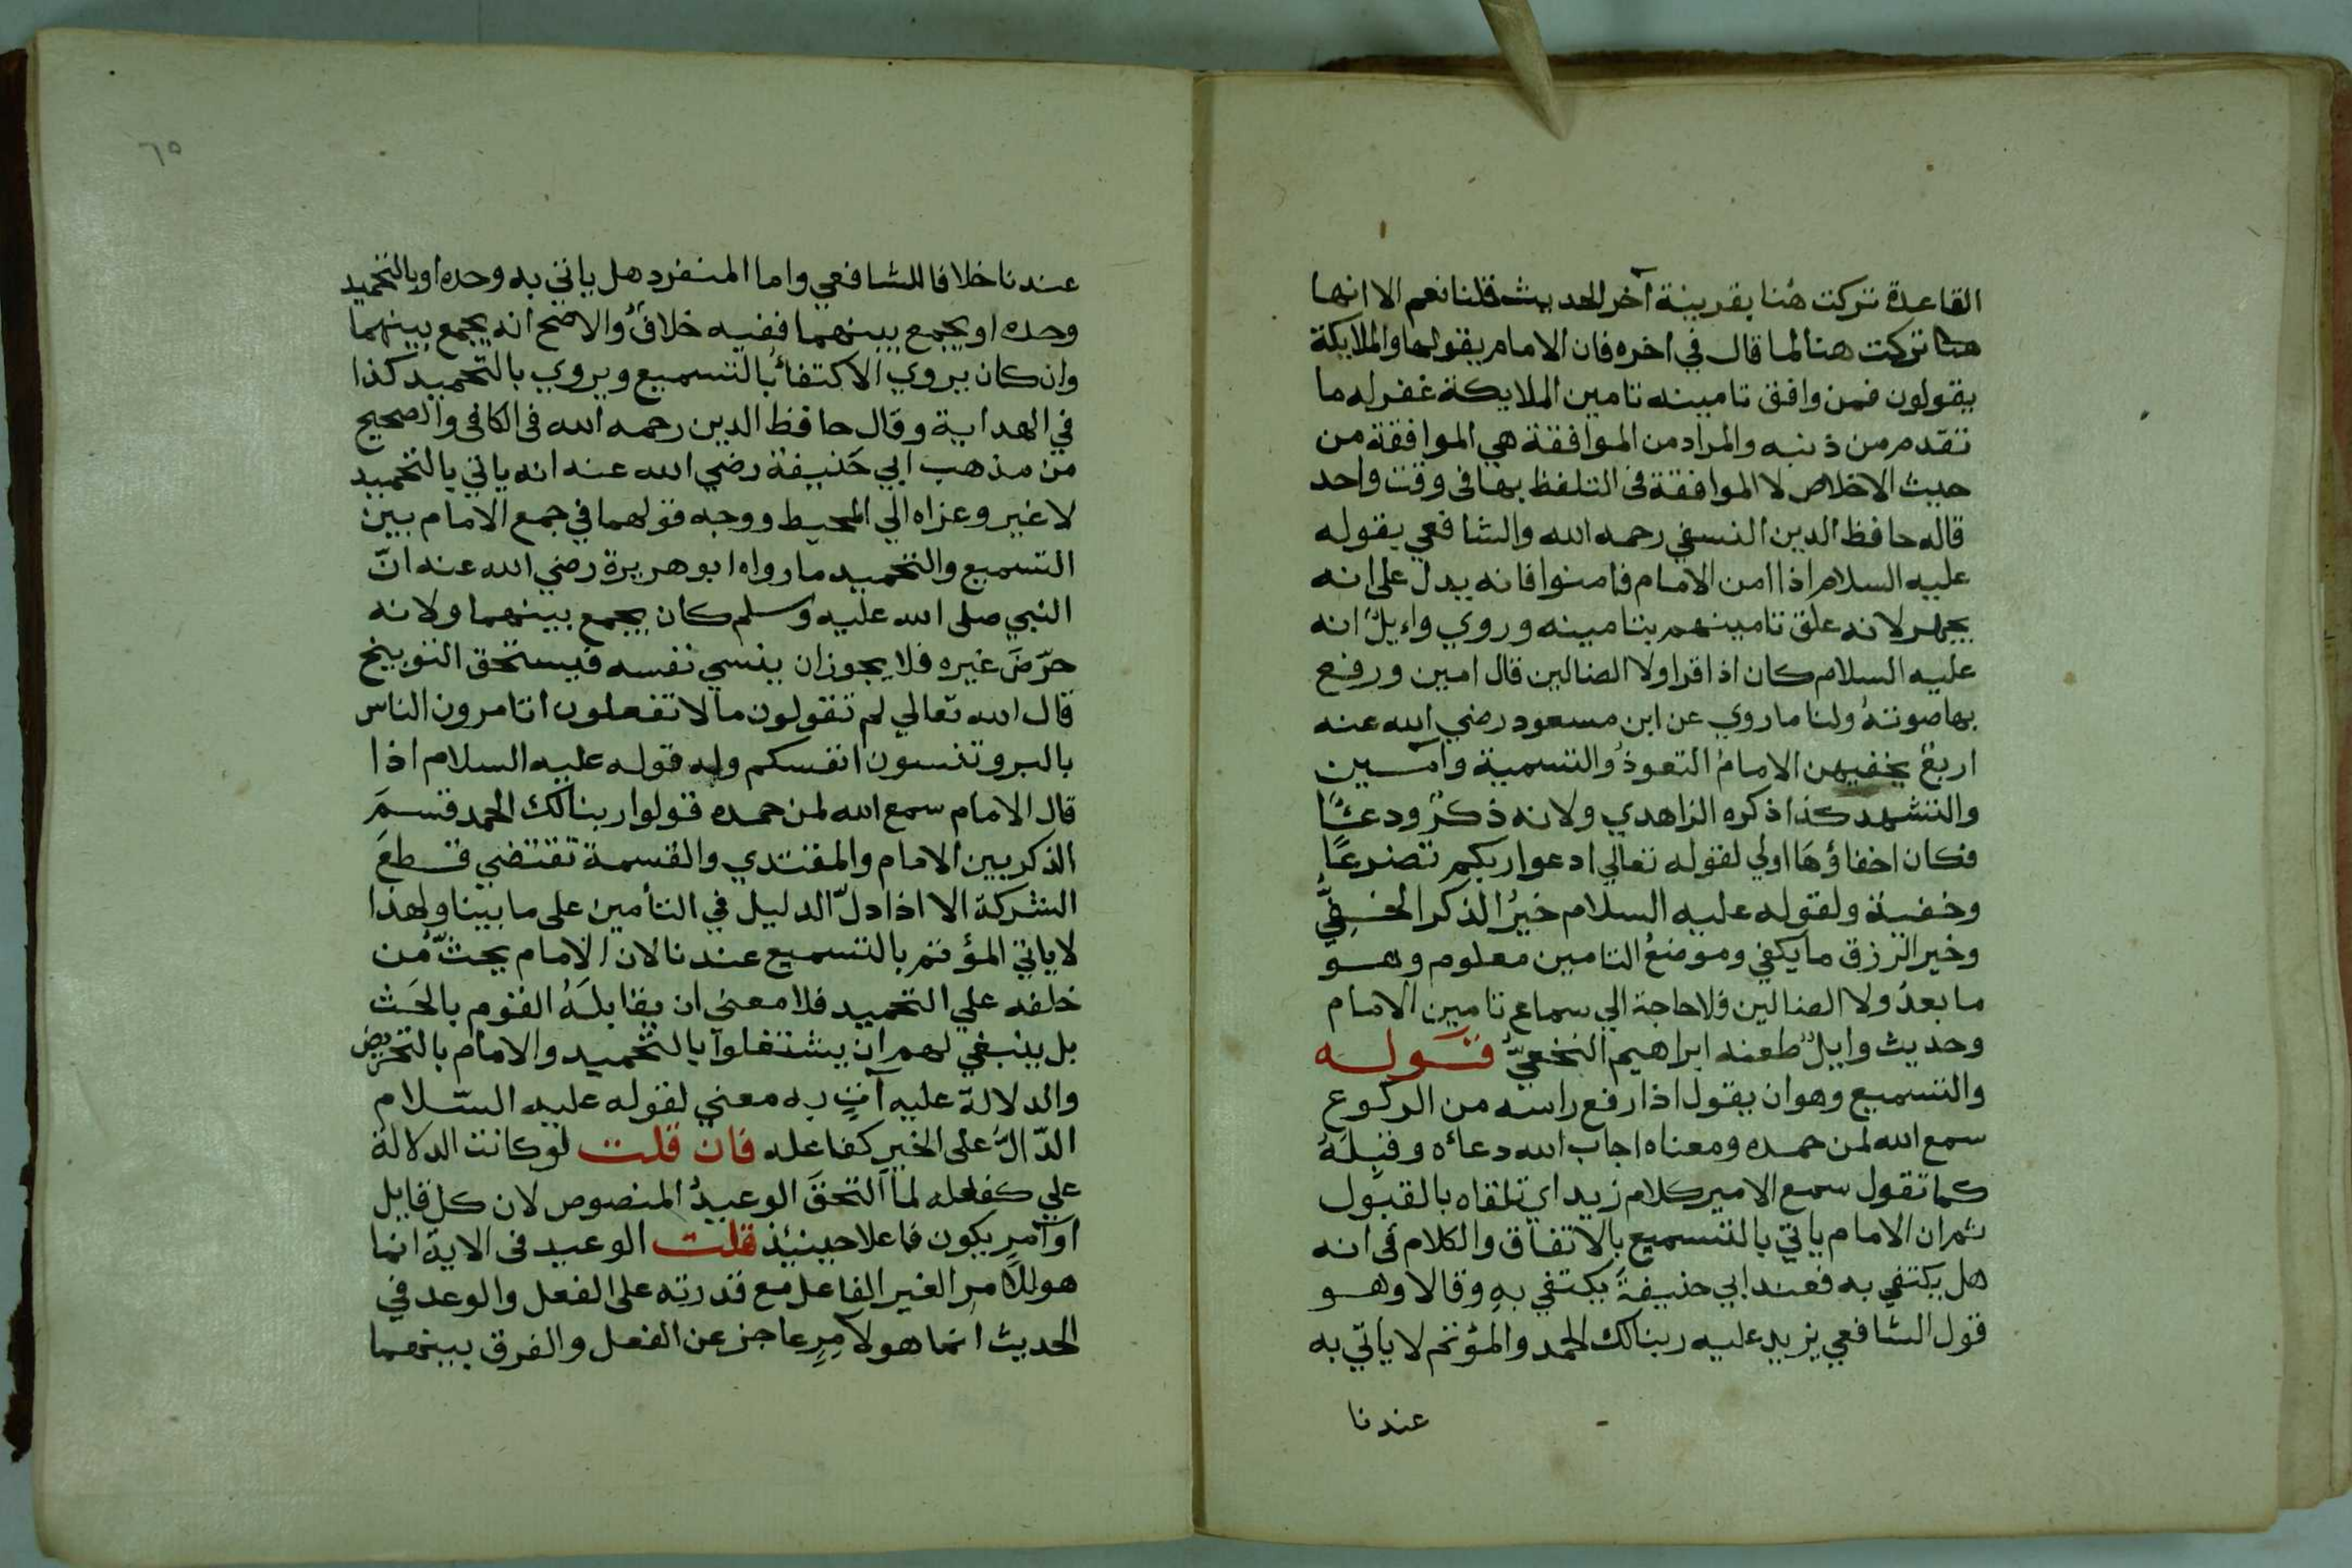 القاعدة تركت هنا بقرينة آخر الحديث قلنا نعم الا انها
هنا تركت هنا لما قال في اخره فان الامام يقولها والملايكة
يقولون فمن وافق تامينه تامين الملايكة غفر له ما
تقدم من ذنبه والمراد من الموافقة هي الموافقة من
حيث الاخلاص لا الموافقة في التلفظ بها في وقت واحد
قاله حافظ الدين النسفي رحمه الله والشافعي يقوله
عليه السلام اذا امن الامام فامنوا فانه يدل على انه
يجهر لانه علق تامينهم بتامينه وروي وايلٌ انه
عليه السلام كان اذا قرا ولا الضالين قال امين ورفع
بها صوتهُ ولنا ما روي عن ابن مسعود رضي الله عنه
اربعٌ يخفيهن الامامُ التعوذُ والتسمية وآمــين
والتشهد كذا ذكره الزاهدي ولانه ذكرٌ ودعــًا
فكان اخفاؤهَا اولي لقوله تعالي ادعوا ربكم تضرعًا
وخفية ولقوله عليه السلام خيرُ الذكر الخــفِيُّ
وخير الرزق ما يكفي وموضعُ التامين معلوم وهــو
ما بعدُ ولا الضالين فلا حاجة الي سماع تامين الامام
وحديث وايلٌ طعنه ابراهيم النخعيُّ قــولــه
والتسميع وهو ان يقول اذا رفع راسه من الركوع
سمع الله لمن حمده ومعناه اجاب الله دعاءه وقبِلَهُ
كما تقول سمع الامير كلام زيد اي تلقاه بالقبول
ثم ان الامام ياتي بالتسميع بالاتفاق والكلام في انه
هل يكتفي به فعند ابي حنيفةَ يكتفي بهِ وقالا وهــو
قول الشافعي يزيد عليه ربنا لك الحمد والمؤتم لا ياتي به
عندنا
٦٥
عندنا خلافا للشافعي واما المنفرد هل ياتي به وحده او بالتحميد
وحده او يجمع بينهما ففيه خلافٌ والاصح انه يجمع بينهما
وان كان يروي الاكتفاءُ بالتسميع ويروي بالتحميد كذا
في الهداية وقال حافظ الدين رحمه الله في الكافي والصحيح
من مذهب ابي حَنيفة رضي الله عنه انه ياتي بالتحميد
لا غير وعزاه الي المحيط ووجه قولهما في جمع الامام بين
التسميع والتحميد ما رواه ابو هريرة رضي الله عنه انّ
النبي صلى الله عليه وسلم كان يجمع بينهما ولانه
حرّضَ غيره فلا يجوز ان ينسي نفسه فيستحق التوبيخ
قال الله تعالي لم تقولون ما لا تفعلون اتامرون الناس
بالبر وتنسون انفسكم وله قوله عليه السلام اذا
قال الامام سمع الله لمن حمده قولوا ربنا لك الحمد قسمَ
الذكر بين الامام والمقتدي والقسمة تقتضي قــطعَ
الشركة الا اذا دلّ الدليل في التأمين على ما بينا ولهذا
لا ياتي المؤتم بالتسميع عندنا لان الامام يحثّ من
خلفه علي التحميد فلا معني ان يقابلَهُ القوم بالحَث
بل ينبغي لهم ان يشتغلوا بالتحميد والامام بالتحريض
والدلالة عليه آتٍ به معني لقوله عليه السّلام
الدّالُّ على الخير كفاعله فان قلت لو كانت الدلالة
علي كفاعله لما التحقَ الوعيدُ المنصوص لان كل قايل
او آمرٍ يكون فاعلا حينئذ قلت الوعيد في الاية انما
هو للآمر الغير الفاعل مع قدرته على الفعل والوعد في
الحديث انما هو لآمِرٍ عاجز عن الفعل والفرق بينهما